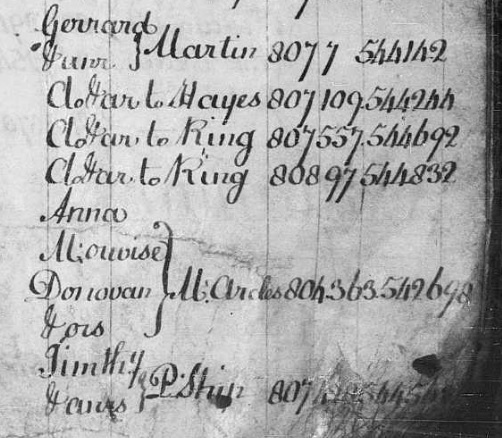 Gerrard
& anr } Martin 807 7 544142
Do & ar to Hayes 807 109 544244
Do & ar to King 807 557 544692
Do & ar to King 808 97 544832
Anna
Donovan } 804 363 542698
& ors
Timthy
& anrs } P. Shin 807